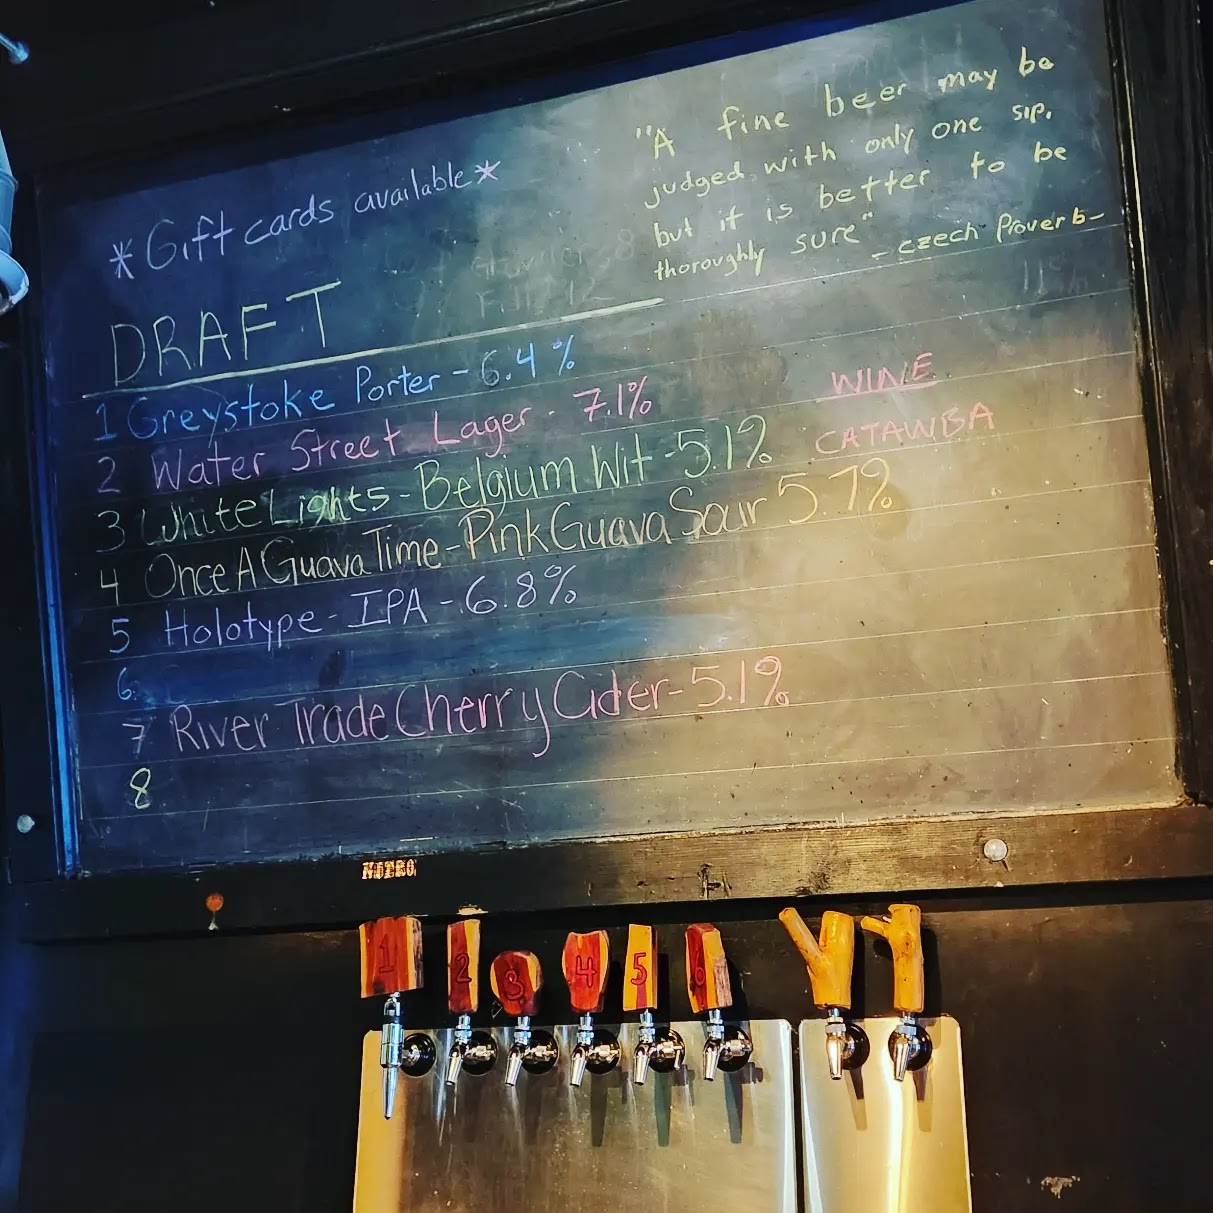 *Gift cards available*
"A fine beer may be
judged with only one sip,
but it is better to be
thoroughly sure"
-czech Proverb-
DRAFT
1 Greystoke Porter - 6.4%
2 Water Street Lager - 7.1%
3 White Lights - Belgium Wit - 5.1%
4 Once A Guava Time - Pink Guava Sour 5.7%
5 Holotype - IPA - 6.8%
6
7 River Trade Cherry Cider - 5.1%
8
WINE
CATAWBA
1
2
3
4
5
6